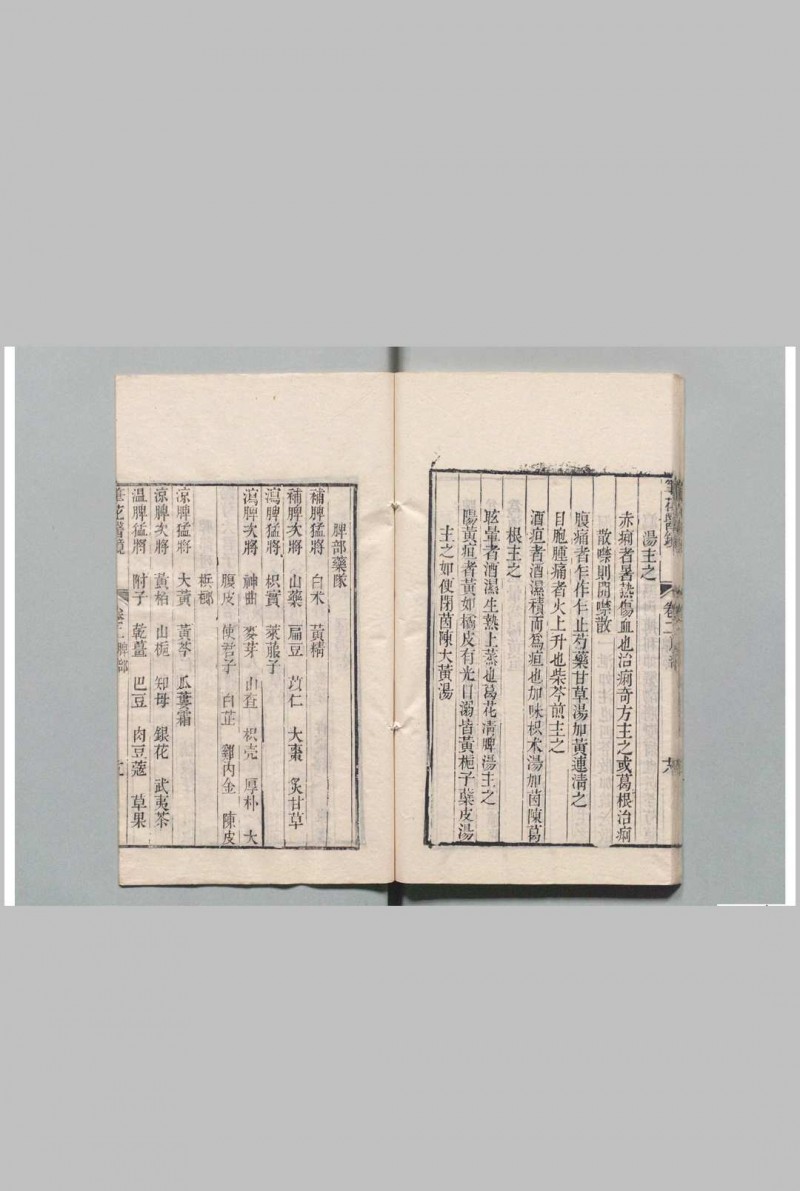 湯主之
赤痢者暑熱傷血也治痢奇方主之或葛根治痢
散噤則開噤散
腹痛者乍作乍止芍藥甘草湯加黃連清之
目胞腫痛者火上升也柴芩煎主之
酒疸者酒濕積而為疸也加味枳朮湯加茵陳葛
根主之
眩暈者酒濕生熱上蒸也葛花清脾湯主之
陽黃疸者黃如橘皮有光目溺皆黃梔子蘗皮湯
主之如便閉茵陳大黃湯
脾部藥隊
補脾猛將 白朮 黃精
補脾次將 山藥 扁豆 苡仁 大棗 炙甘草
瀉脾猛將 枳實 萊菔子
瀉脾次將 神曲 麥芽 山查 枳壳 厚朴 大
腹皮 使君子 白芷 雞內金 陳皮
檳榔
涼脾猛將 大黃 黃芩 瓜蔞霜
涼脾次將 黃柏 山梔 知母 銀花 武夷茶
溫脾猛將 附子 乾薑 巴豆 肉豆蔻 草果
筆花醫鏡 卷二 脾部